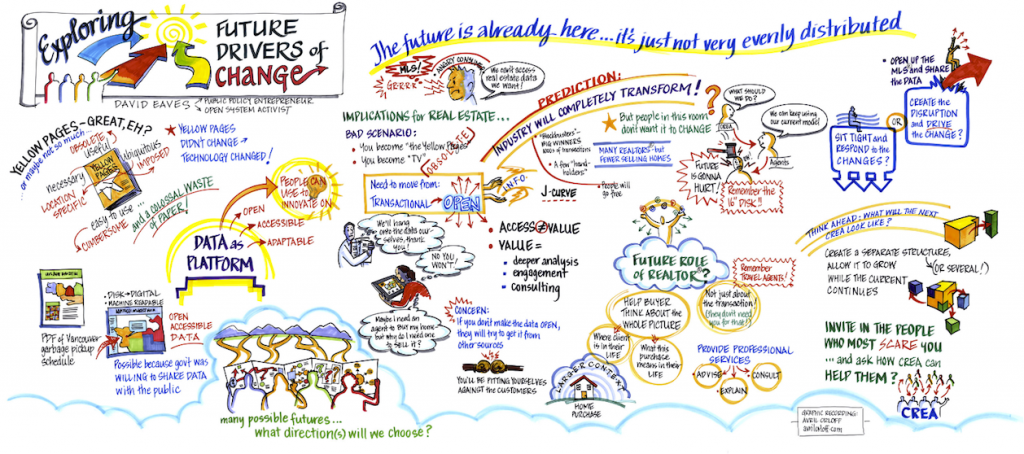 Exploring
FUTURE
DRIVERS of
CHANGE
DAVID EAVES
PUBLIC POLICY ENTREPRENEUR
OPEN SYSTEM ACTIVIST
The future is already here...it's just not very evenly distributed
YELLOW PAGES - GREAT, EH?
or maybe not so much
OBSOLETE
useful
ubiquitous
IMPOSED
YELLOW
PAGES
necessary
LOCATION
SPECIFIC
easy to use
CUMBERSOME
and a COLOSSAL WASTE
of PAPER!
YELLOW PAGES
DIDN'T CHANGE
TECHNOLOGY CHANGED!
PEOPLE CAN
USE to
INNOVATE ON
OPEN
ACCESSIBLE
ADAPTABLE
DATA as
PLATFORM
PDF of Vancouver
garbage pickup
schedule
• DISK → DIGITAL
MACHINE READABLE
OPEN
ACCESSIBLE
DATA
Possible because gov't was
WILLING to SHARE DATA
with the public
many possible futures...
what direction(s) will we choose?
MLS!
GRRRR
ANGRY CONSUMER
We can't access
real estate data
we want!
IMPLICATIONS for REAL ESTATE...
BAD SCENARIO:
• You become "the Yellow Pages"
• You become "TV"
OBSOLETE
Need to move from:
TRANSACTIONAL
OPEN
INFO
We'll hang
onto the data our-
selves, thank
you!
NO YOU
WON'T
Maybe I need an
agent to Buy my home
but why do I need one
to sell it?
• ACCESS ≠ VALUE
• VALUE =
• deeper analysis
• engagement
• consulting
CONCERN:
If you don't make the data OPEN,
they will try to get it from
other sources
YOU'LL BE PITTING YOURSELVES
AGAINST the CUSTOMERS
PREDICTION:
INDUSTRY WILL COMPLETELY TRANSFORM!
• "Blockbusters"
BIG WINNERS
1000s of transactions
• A few "hand-
holders"
J-CURVE
But people in this room
don't want it to CHANGE
MANY REALTORS - but
FEWER SELLING HOMES
• People will
go free
WHAT SHOULD
WE DO?
CREA
We can keep using
our current model
Agents
FUTURE
IS GONNA
HURT!
Remember the
16" DISK!!
FUTURE ROLE
OF REALTOR?
Remember
TRAVEL AGENTS!
HELP BUYER
THINK ABOUT the
WHOLE PICTURE
Not just about
the transaction
(they don't need
you for that!)
Where client
is in their
LIFE
What this
purchase
means in their
LIFE
LARGER CONTEXT
HOME
PURCHASE
PROVIDE PROFESSIONAL
SERVICES
ADVISE
CONSULT
EXPLAIN
• OPEN UP the
MLS and SHARE
the DATA
CREATE the
DISRUPTION
and DRIVE
the CHANGE?
OR
SIT TIGHT and
RESPOND to the
CHANGES?
THINK AHEAD: WHAT WILL THE NEXT
CREA LOOK LIKE?
CREATE A SEPARATE STRUCTURE,
ALLOW IT to GROW
WHILE the CURRENT
CONTINUES
(OR SEVERAL!)
INVITE IN THE PEOPLE
WHO MOST SCARE YOU
...and ask HOW CREA can
HELP THEM?
CREA
GRAPHIC RECORDING:
AVRIL ORLOFF
avrilorloff.com